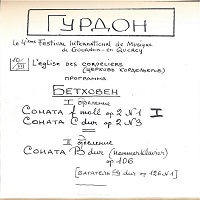 ГУРДОН
Le 4ème Festival International de Musique
de Gourdon-en Quercy
10/VIII L'église des Cordeliers
(церковь Кордельеров)
программа
БЕТХОВЕН
I отделение
Соната f moll op 2 N°1
Соната C dur op 2 N°3
I
II отделение
Соната B dur (Hammerklavier)
op 106
[Багатель G dur op 126 N 1]